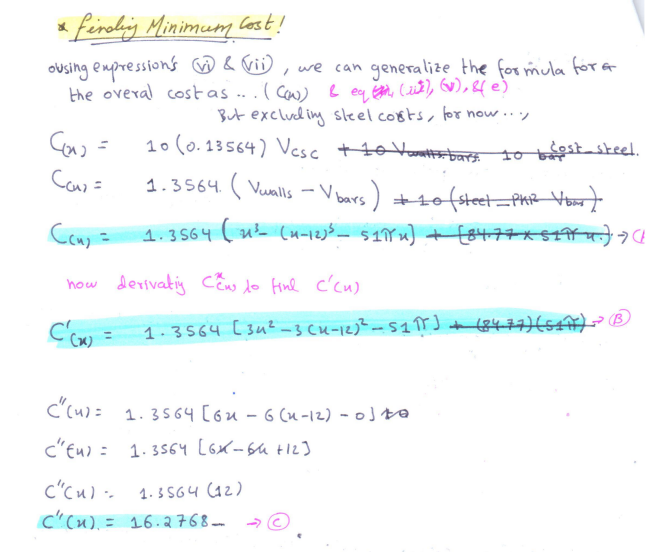 * Finding Minimum Cost!
using expressions (vi) & (vii), we can generalize the formula for
the overal cost as ... (C(x)) & eq (iii), (v), & (e)
But excluding steel costs, for now ...,
C(x) = 10 (0.13564) Vcsc + 10 Vwalls.bars. 10 bar cost_steel.
C(x) = 1.3564. (Vwalls - Vbars) + 10 (steel_Phi² Vbar).
C(x) = 1.3564 (x³ - (x-12)³ - 51πx] + [84.77 x 51π x.] →
now derivating C(x) to find C'(x)
C'(x) = 1.3564 [3x² - 3(x-12)² - 51π] + (84.77)(51π) → (B)
C"(x) = 1.3564 [6x - 6(x-12) - 0] + 0
C"(x) = 1.3564 [6x - 6x + 12]
C"(x) = 1.3564 (12)
C"(x) = 16.2768 → (C)